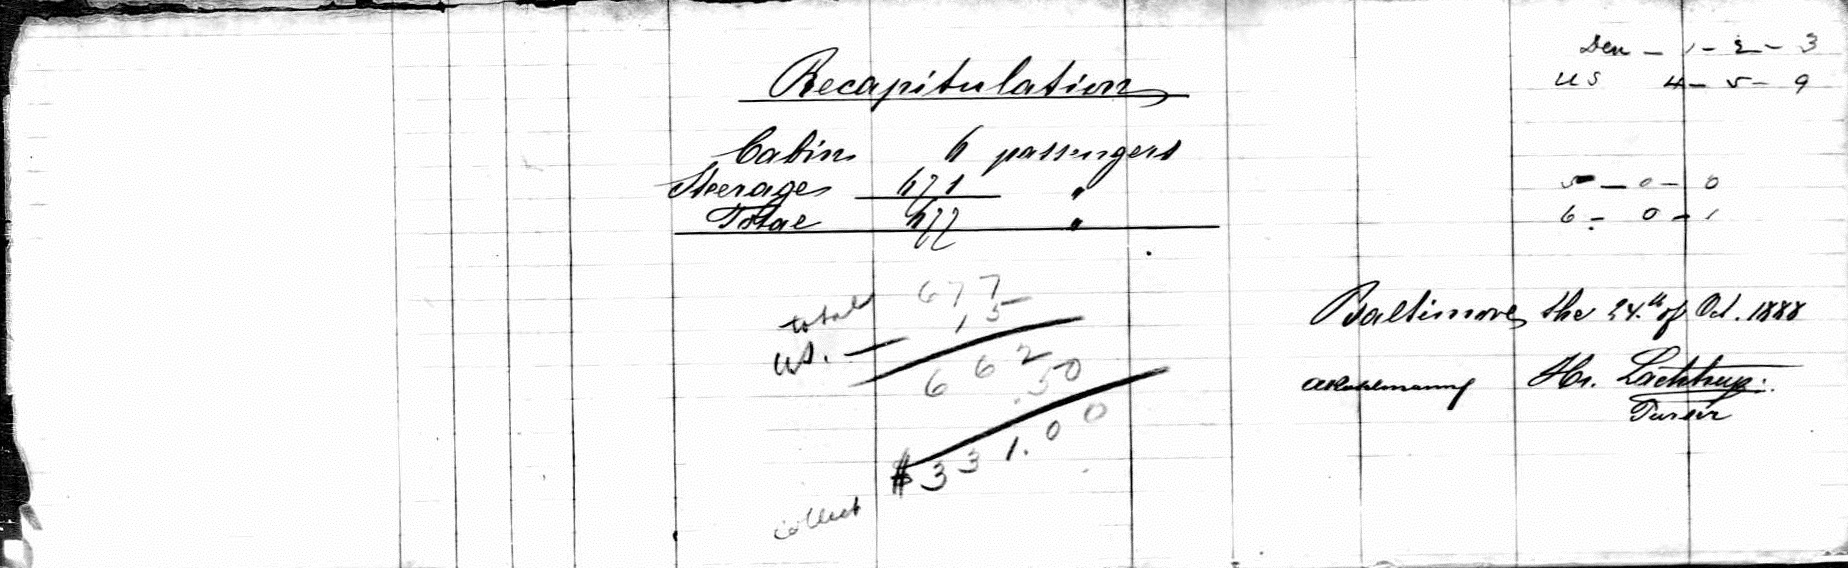 Recapitulation
Cabin 6 passengers
Steerage 671 "
Total 677 "
total 677
U.S. — 15
662
.50
collect $331.00
Den — 1 - 2 - 3
US 4 - 5 - 9
5 — 0 - 0
6 - 0 - 1
Baltimore, the 24.th of Oct. 1888
Purser